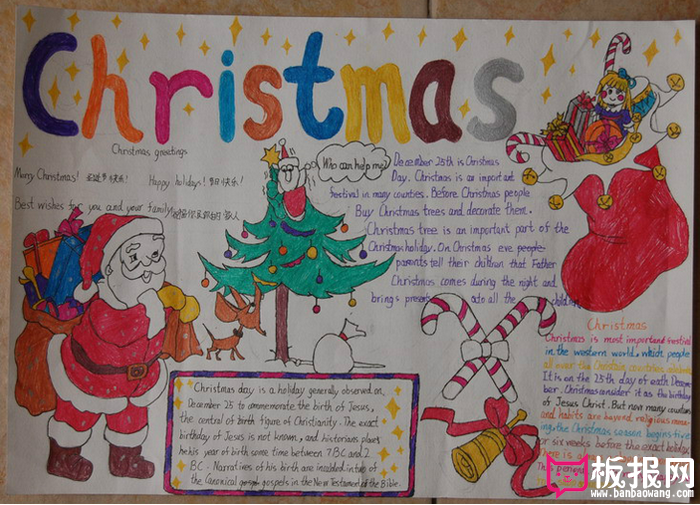 Christmas
Christmas greetings
Merry Christmas! 圣诞节快乐! Happy holidays! 节日快乐!
Best wishes for you and your family!
Who can help me?
December 25th is Christmas
Day. Christmas is an important
festival in many counties. Before Christmas people
Buy Christmas trees and decorate them.
Christmas tree is an important part of the
Christmas holiday. On Christmas eve people
parents tell their children that Father
Christmas comes during the night and
brings to all the children.
Christmas day is a holiday generally observed on
December 25 to commemorate the birth of Jesus,
the central of birth figure of Christianity. The exact
birthday of Jesus is not known, and historians place
his year of birth some time between 7 BC and 2
BC. Narratives of his birth are included in two of
the Canonical gospel gospels in the New Testament of the Bible.
Christmas
Christmas is most important festival
in the western world, which people
all over the Christian countries
It is on the 25th day of each Decem
ber. Christmas consider it as the birthday
of Jesus Christ. But now many countries
and habits are beyond religious mean
ing, the Christmas season begins five
or six weeks before the exact holiday
There is a
板报网
www.banbaowang.com